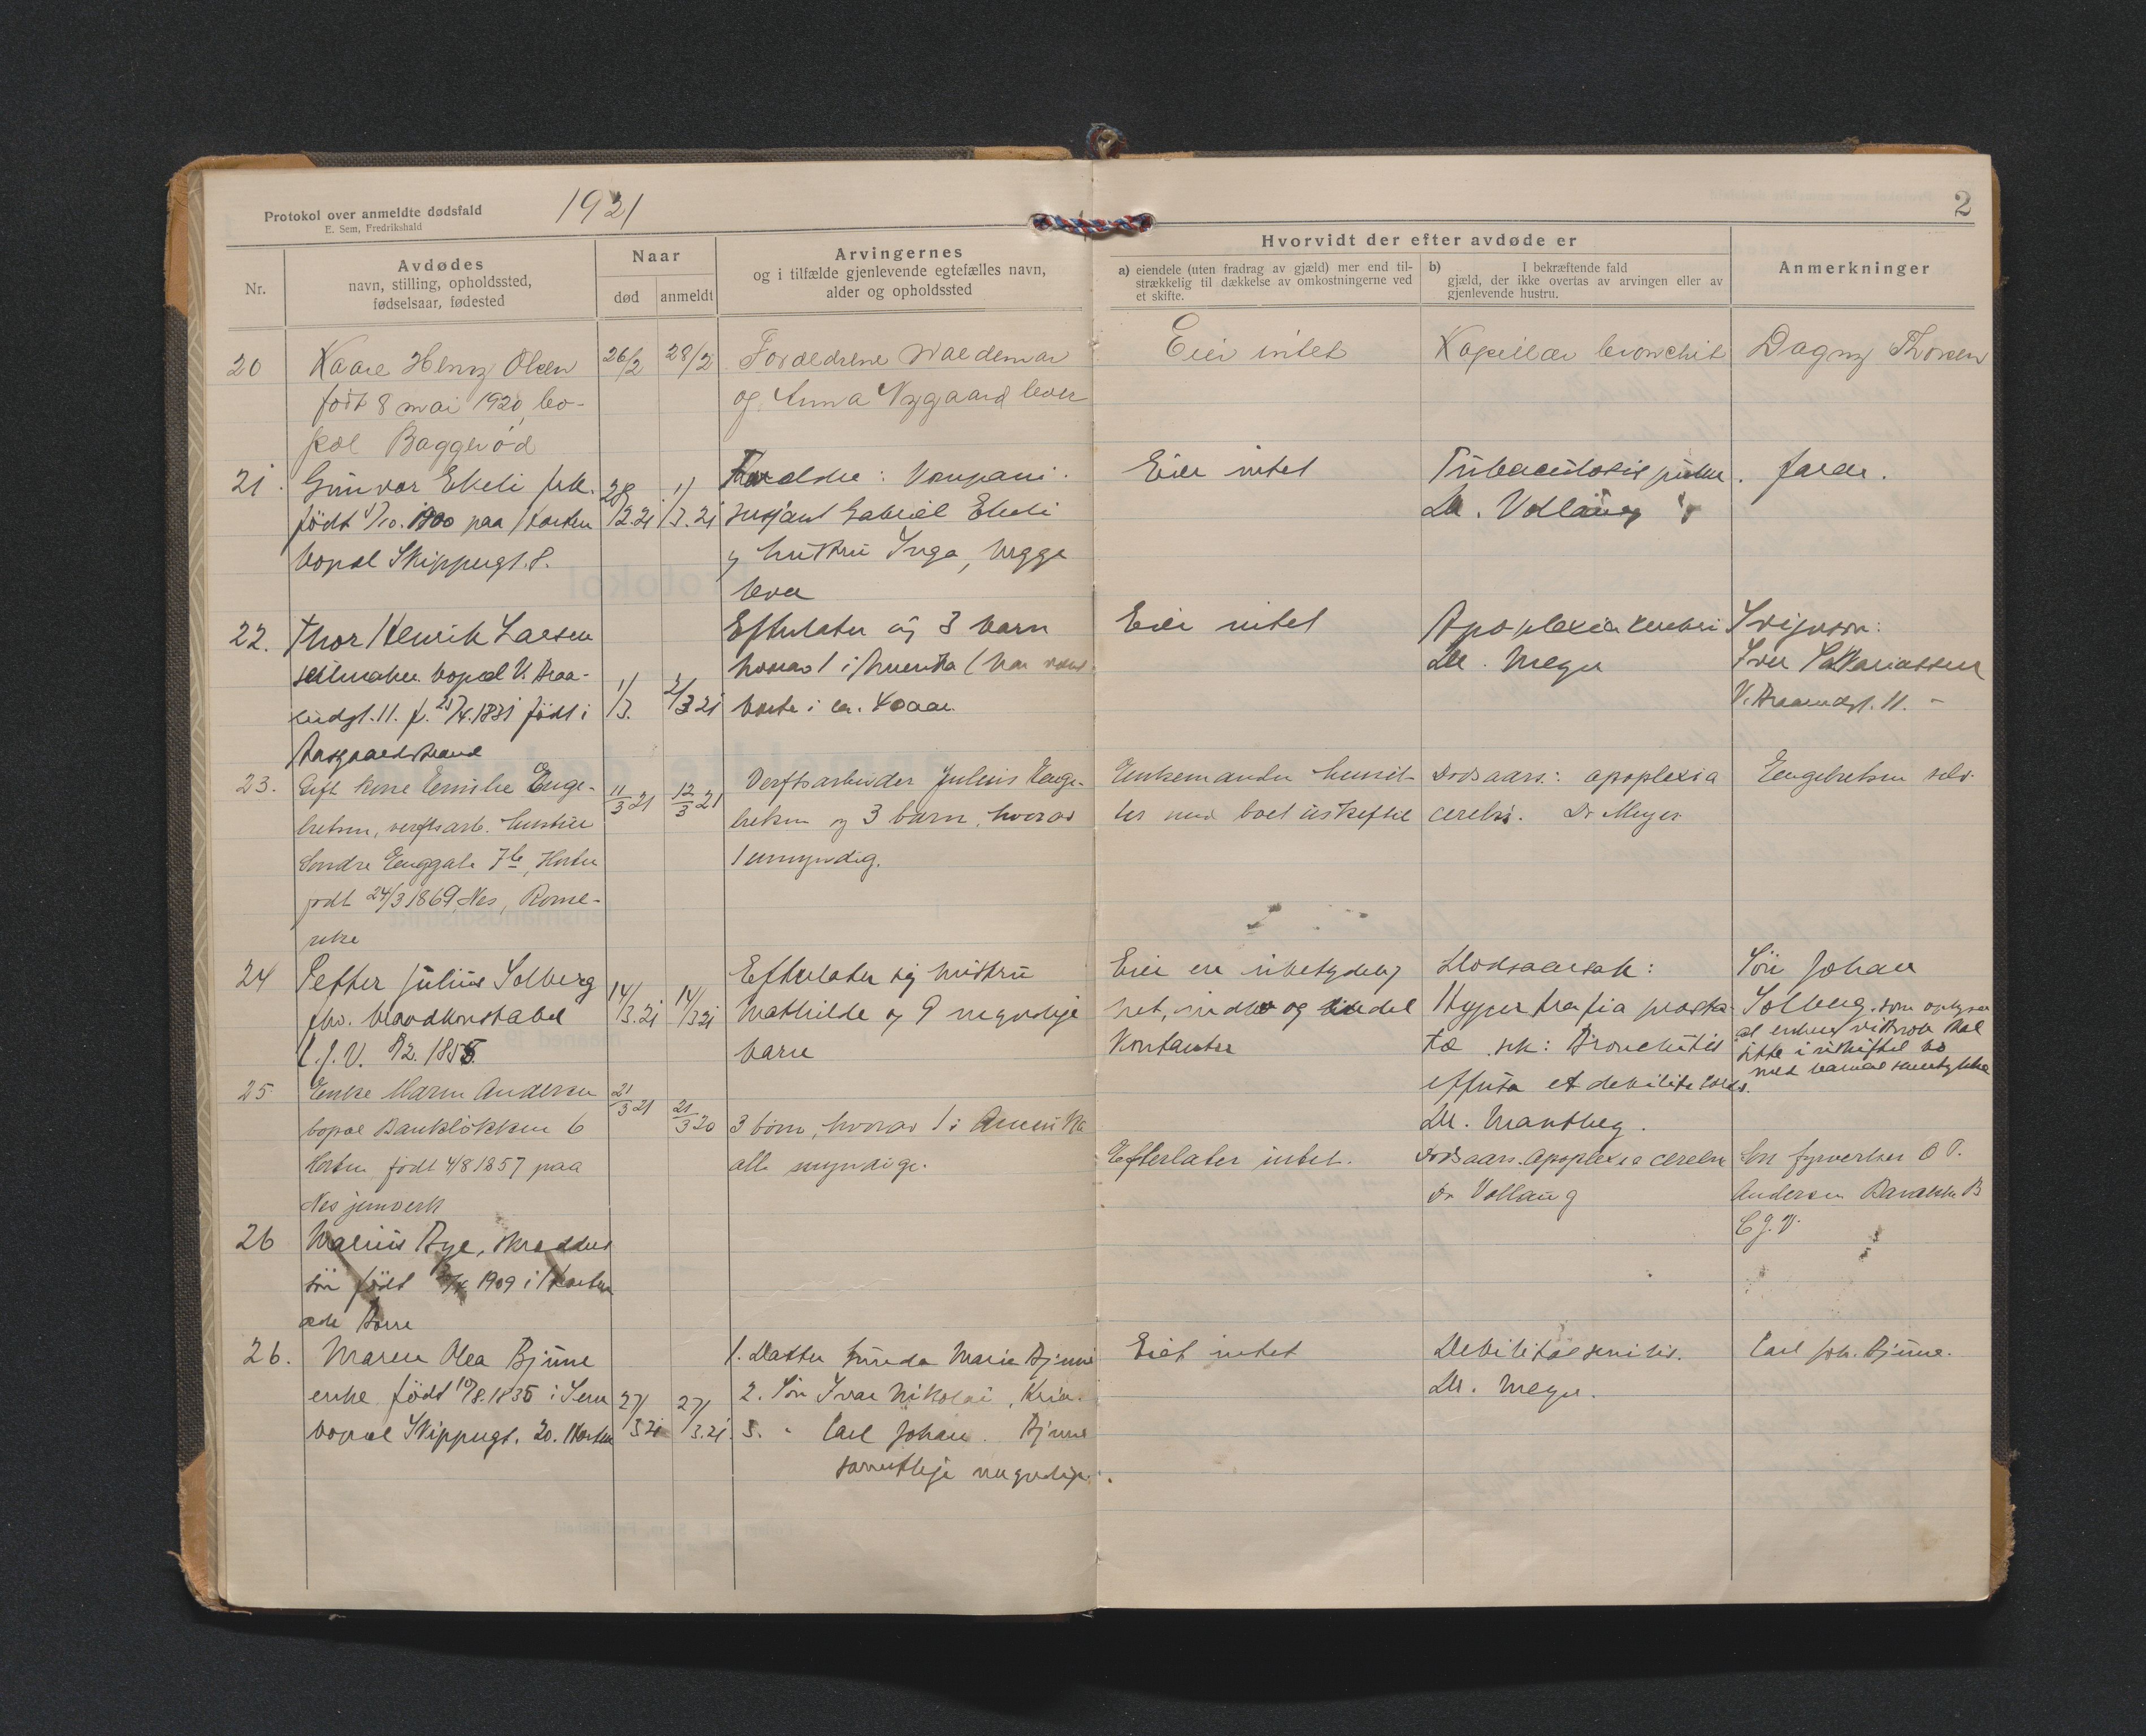 Protokol over anmeldte dødsfald
E. Sem, Fredrikshald
1921
2
Nr.
Avdødes
navn, stilling, opholdssted,
fødselsaar, fødested
Naar
død
anmeldt
Arvingernes
og i tilfælde gjenlevende egtefælles navn,
alder og opholdssted
Hvorvidt der efter avdøde er
a) eiendele (uten fradrag av gjæld) mer end til-
strækkelig til dækkelse av omkostningerne ved
et skifte.
b) I bekræftende fald
gjæld, der ikke overtas av arvingen eller av
gjenlevende hustru.
Anmerkninger
20
Kaare Henry Olsen
født 8 mai 1920, bo-
pæl Baggerød
26/2
28/2
Forældrene Waldemar
og Anna Nygaard lever
Eier intet
Kapillær bronchit
Dagny Thorsen
21.
Gunvor Ekeli frk.
født 4/10. 1900 paa Horten
bopæl Skippergt. 8.
28/2.21
1/3.21
Forældre: Kompani-
sersjant Gabriel Ekeli
og hustru Inga, begge
lever
Eier intet
Tuberculosis pulm.
Dr. Vollaug
farar.
22.
Thor Henrik Larsen
seilmaker bopæl V. Braa-
tudgt. 11. f. 25/4.1831 født i
Aasgaardstrand
1/3.
2/3 21
Efterlater sig 3 barn
hvorav 1 i Amerika (har vært
borte i ca. 40 aar.
Eier intet
Apoplexia cerebri
Dr. Meyer
Svigersøn:
Iver Sakariassen
23.
Gift kone Emilie Enge-
bretsen, verftsarb. hustru
Søndre Enggate 7b, Horten
født 24/3 1869, Nes, Rome-
rike
11/3 21
12/3 21
Verftsarbeider Julius Enge-
bretsen og 3 barn, hvorav
1 umyndig.
Enkemanden hensit-
ter med boet uskiftet
Dødsaars.: apoplexia
cerebri. Dr Meyer
Engebretsen selv.
24
Petter Julius Solberg
fhv. brandkonstabel
C.J.V. 8/2. 1855
14/3.21
14/3 21
Efterlater sig hustru
Mathilde og 9 myndige
barn
Eier en ubetydelig-
het, indbo og endel
kontanter
Dødsaarsak:
Hypertrofia prosta-
tæ sek: Bronchitis
diffusa et debilitas cordis.
Dr. Mantheg.
Søn Johan
Solberg, som oplyser
at enken vistnok skal
sitte i uskiftet bo
med barnas samtykke
25
Enke Maren Andersen
bopæl Bankløkken 6
Horten født 4/8 1857 paa
Nes jernverk
21/3 21
21/3 20
3 børn, hvorav 1 i Amerika
alle myndige.
Efterlater intet.
Dødsaars. Apoplexia cerebri
Dr Vollaug
Søn fyrverker O T.
Andersen Barakke B
C.J.V.
26
født 1909 i Horten
26.
Maren Olea Bjune
enke født 10/8.1835 i Sem
bopæl Skippergt. 20. Horten
27/3.21
27/3.21.
1. Datter Gunda Marie Bjune
2. Søn Ivar Nikolai, Kria.
3. " Carl Johan. Bjune
samtlige myndige.
Eiet intet
Debilitas senilis.
Dr. Meyer.
Carl Joh. Bjune.